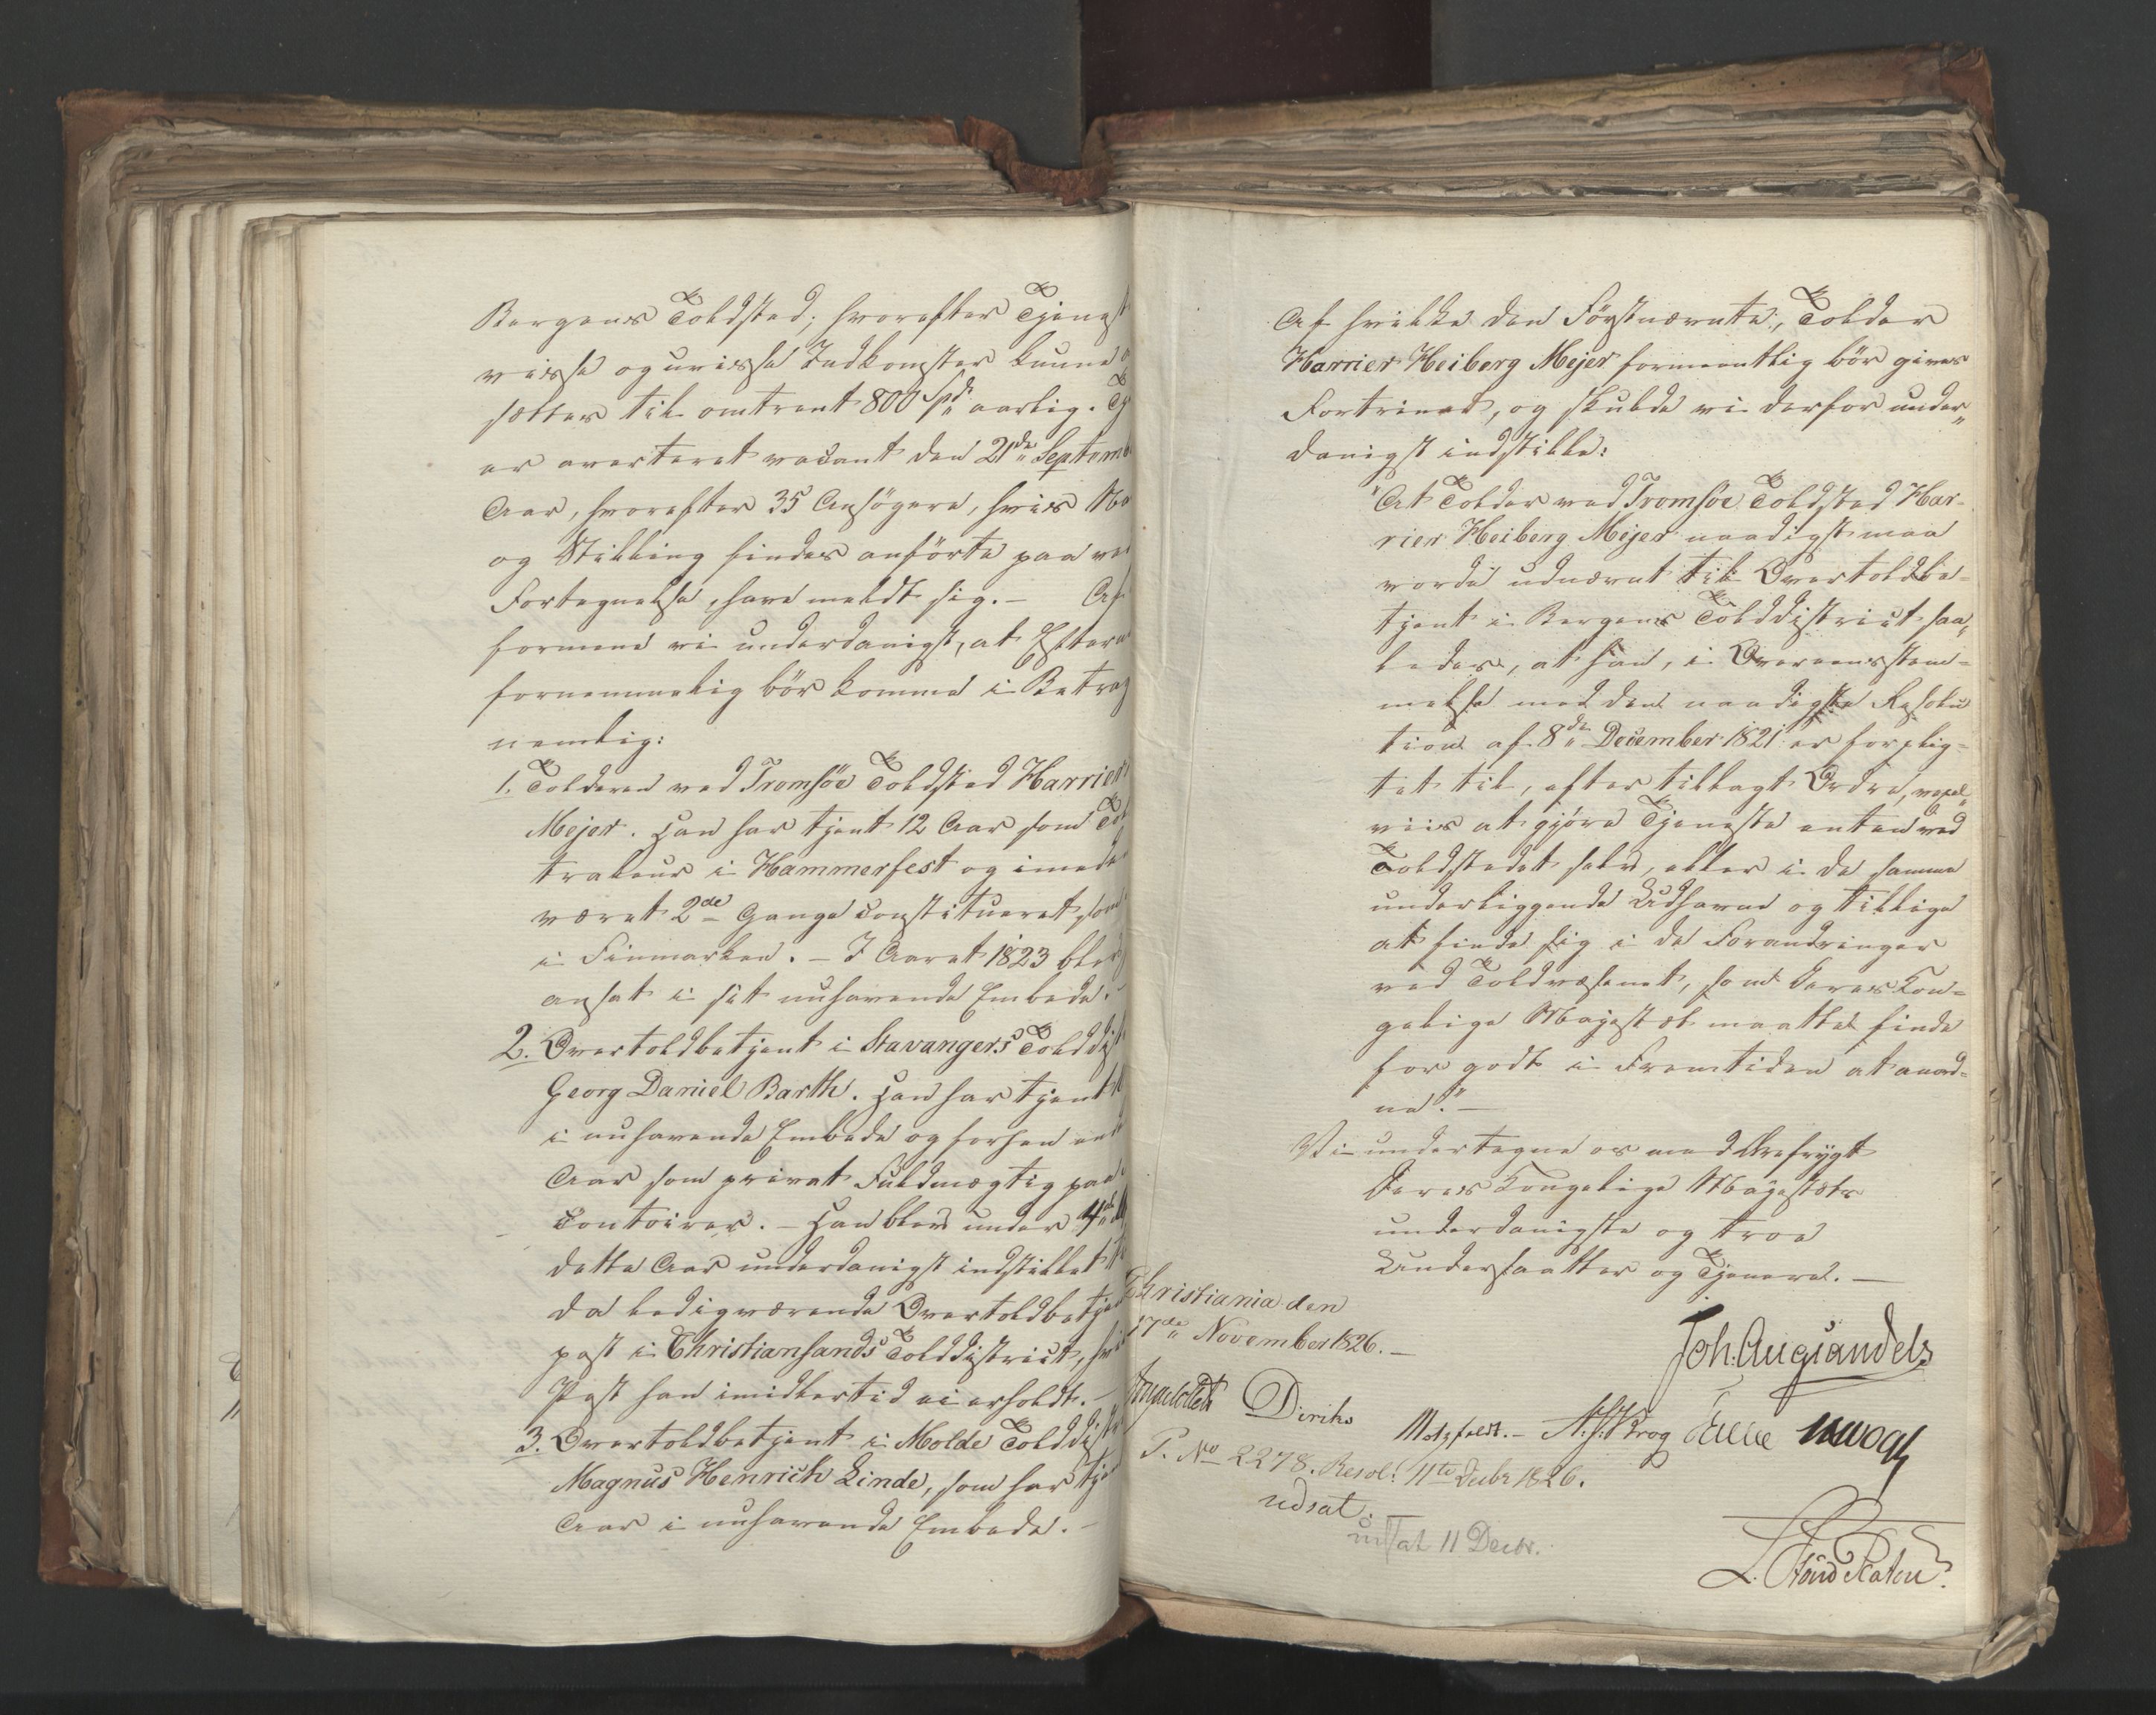 Bergens Toldsted; hvorefter Tjenest
visse og uvisse Indkomster kunne
sættes til omtrent 800 Spd aarlig. Tj
er averteret vacant den 21de Septemb
Aar, hvorefter 35 Ansøgere, hvis Na
og Stilling findes anførte paa ved
Fortegnelse, have meldt sig. – Af
formene vi underdanigst, at Eftern
fornemmelig bør komme i Betrag
nemlig:
1. Tolderen ved Tromsöe Toldsted Harrier
Mejer. Han har tjent 12 Aar som Tol
trolleur i Hammerfest og imed
været 2de Gange constitueret som
i Finmarken. – I Aaret 1823 blev
ansat i sit nuhavende Embede. –
2. Overtoldbetjent i Stavangers Tolddist
Georg Daniel Barth. Han har tjent
i nuhavende Embede og forhen
Aar som privat Fuldmægtig paa
Contoirer. – Han blev under 4de
dette Aar underdanigst indstillet
da ledigværende Overtoldbetjen
post i Christiansands Tolddistrict,
Post han imidlertid ei erholdt. –
3. Overtoldbetjent i Molde Tolddistr
Magnus Henrich Linde, som har tje
Aar i nuhavende Embede. –
Af hvilke den Førstnævnte, Tolder
Harrier Heiberg Mejer formeentlig bør gives
Fortrinet, og skulde vi derfor under„
danigst indstille:
"At Tolder ved Tromsöe Toldsted Har-
rier Heiberg Mejer naadigst maa
vorde udnævnt til Overtoldbe-
tjent i Bergens Tolddistrict saa„
ledes, at han, i Overeensstem-
melse med den naadigste Resolu
tion af 8de December 1821 er forplig-
tet til, efter tillagt Ordre, vexel„
viis at gjøre Tjeneste enten ved
Toldstedet selv, eller i de samme
underliggende Udhavne og tillige
at finde sig i de Forandringer
ved Toldvæsenet, som Deres Kon-
gelige Majestæt maatte finde
for godt i Fremtiden at anord-
ne." –
Vi undertegne os med Ærefrygt
Deres Kongelige Majestæts
underdanigste og troe
Undersaatter og Tjenere. –
Christiania den
17de November 1826. –
Joh. Aug. Sandels
Ingstad Diriks Motzfeldt. – A. J. Krog
P. No 2278. Resol: 11te Decbr 1826.
udsat.
udsat 11 Decbr.
L. Stoud Platou.